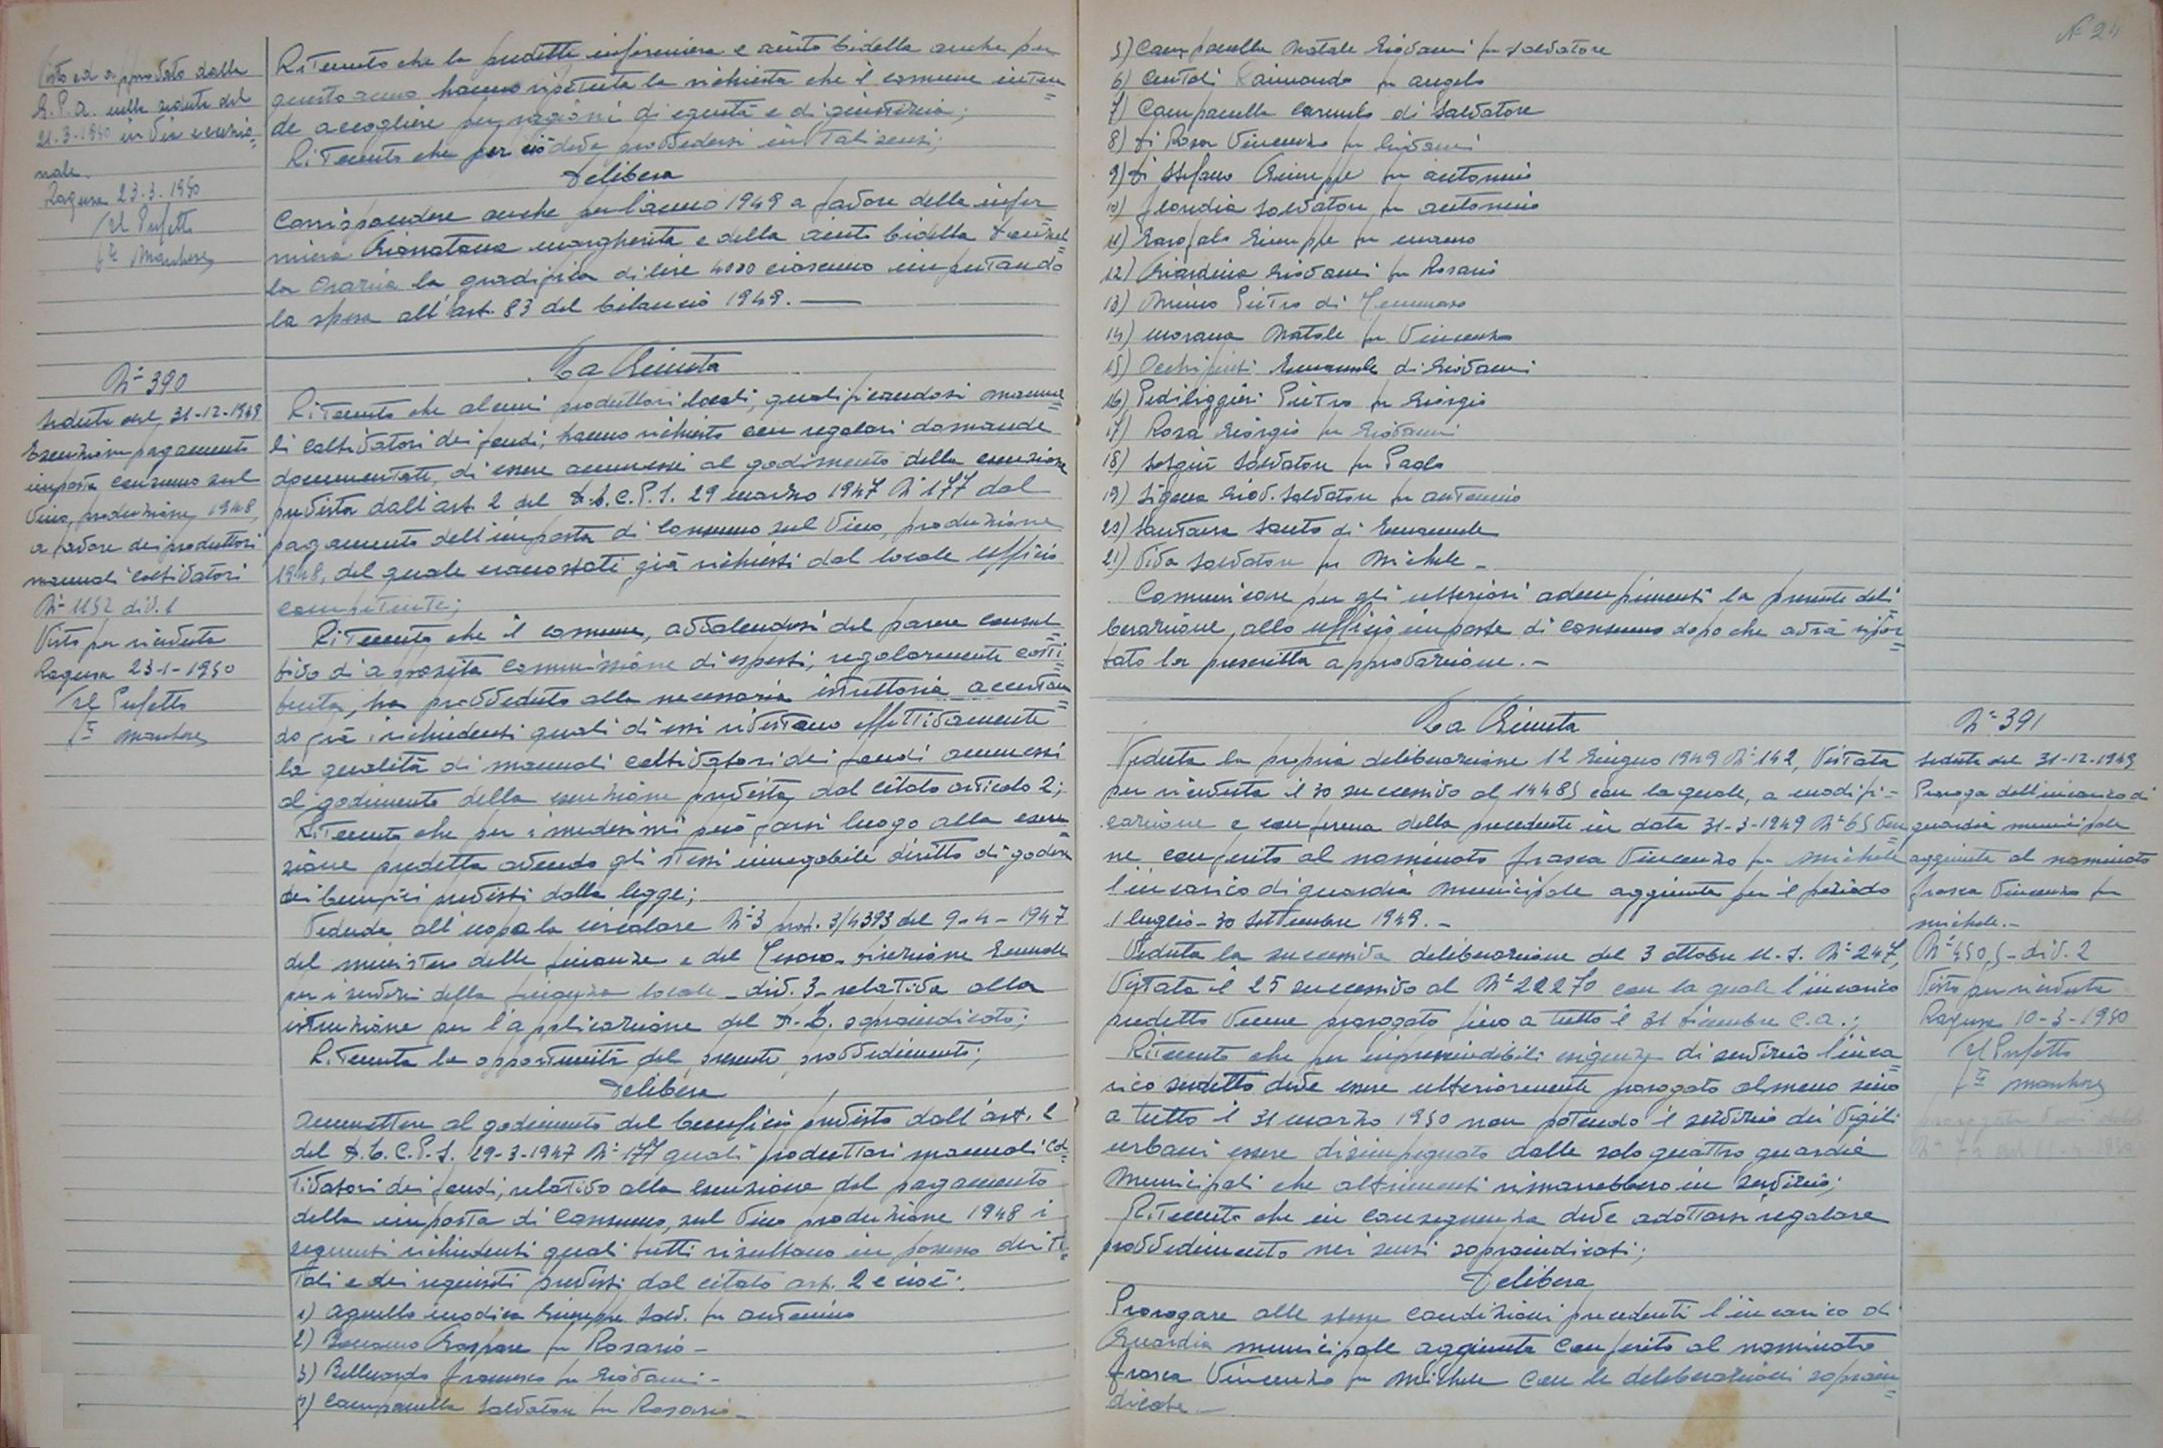 Visto ed approvato dalla
G.P.A. nella seduta del
21-3-1950 in via eccezio=
nale.
Ragusa 23-3-1950
Il Prefetto
Ritenuto che la predetta infermiera e aiuto bidella anche per
questo anno hanno ripetuta la richiesta che il comune inten=
de accogliere per ragioni di equità e di giustizia;
Ritenuto che per ciò deve provvedersi in tali sensi;
Delibera
Corrispondere anche per l'anno 1949 a favore della infer
miera Margherita e della aiuto bidella
la la gratifica di lire 4000 ciascuno imputando
la spesa all'art. 83 del bilancio 1949. —
N° 390
Seduta del 31-12-1949
Esenzione pagamento
imposta consumo sul
vino, produzione 1948,
a favore dei produttori
manuali coltivatori
N° 1152 div. 1
Visto per ricevuta
Ragusa 23-1-1950
Il Prefetto
La Giunta
Ritenuto che alcuni produttori locali, qualificandosi manua=
li coltivatori dei fondi, hanno richiesto con regolari domande
documentate, di essere ammessi al godimento della esenzione
prevista dall'art. 2 del D.L.C.P.S. 29 marzo 1947 N° 177 dal
pagamento dell'imposta di consumo sul vino, produzione
1948, del quale erano stati già richiesti dal locale ufficio
competente;
Ritenuto che il comune, avvalendosi del parere consul=
tivo di apposita commissione di esperti, regolarmente costi=
tuita, ha provveduto alla necessaria istruttoria accertan=
do fra i richiedenti quali di essi rivestano effettivamente
la qualità di manuali coltivatori dei fondi ammessi
al godimento della esenzione prevista dal citato articolo 2;
Ritenuto che per i medesimi può farsi luogo alla esen=
zione predetta avendo gli stessi innegabile diritto di godere
dei benefici previsti dalla legge;
Veduta all'uopo la circolare N° 3 prot. 3/4393 del 9-4-1947
del ministero delle finanze e del Tesoro - Direzione Generale
per i servizi della finanza locale - div. 3 - relativa alla
istruzione per l'applicazione del D.L. sopraindicato;
Ritenuta la opportunità del presente provvedimento;
Delibera
Ammettere al godimento del beneficio previsto dall'art. 2
del D.L.C.P.S. 29-3-1947 N° 177 quali produttori manuali col=
tivatori dei fondi, relativo alla esenzione del pagamento
della imposta di consumo, sul vino produzione 1948 i
seguenti richiedenti quali tutti risultano in possesso dei ti=
toli e dei requisiti previsti dal citato art. 2 e cioè:
1) Agnello modica Giuseppe Salv. fu Antonino
2) Gaspare fu Rosario -
3) Belluardo Francesco fu Giovanni -
4) Campanella Salvatore fu Rosario -
N° 24
5) Campanella Natale Giovanni fu Salvatore
6) Raimondo fu Angelo
7) Campanella Carmelo di Salvatore
8) Di Rosa Vincenzo fu Giovanni
9) Di Stefano Giuseppe fu Antonino
10) Floridia Salvatore fu Antonino
11) Garofalo Giuseppe fu
12) Giardina Giovanni fu Rosario
13) Pietro di Tommaso
14) Morana Natale fu Vincenzo
15) Occhipinti Emanuele di Giovanni
16) Pediliggieri Pietro fu Giorgio
17) Rosa Giorgio fu Giovanni
18) Salvatore fu Paolo
19) Sigona Giov. Salvatore fu Antonino
20) Santaera Santo di Emanuele
21) Vita Salvatore fu Michele -
Comunicare per gli ulteriori adempimenti la presente deli=
berazione, allo ufficio imposte di consumo dopo che avrà ripor=
tato la prescritta approvazione. -
La Giunta
Veduta la propria deliberazione 12 Giugno 1949 N° 142, vistata
per ricevuta il 30 successivo al 14485 con la quale, a modifi=
cazione e conferma della precedente in data 31-3-1949 N° 65 ven=
ne conferito al nominato Frasca Vincenzo fu Michele
l'incarico di guardia municipale aggiunta per il periodo
1 luglio - 30 Settembre 1949. -
Veduta la successiva deliberazione del 3 ottobre u.s. N° 247,
vistata il 25 successivo al N° 22270 con la quale l'incarico
predetto venne prorogato fino a tutto il 31 Dicembre c.a.;
Ritenuto che per imprescindibili esigenze di servizio l'inca=
rico suddetto deve essere ulteriormente prorogato almeno sino
a tutto il 31 marzo 1950 non potendo il servizio dei vigili
urbani essere disimpegnato dalle sole quattro guardie
municipali che altrimenti rimarrebbero in servizio;
Ritenuto che in conseguenza deve adottarsi regolare
provvedimento nei sensi sopraindicati;
Delibera
Prorogare alle stesse condizioni precedenti l'incarico di
Guardia municipale aggiunta conferito al nominato
Frasca Vincenzo fu Michele con le deliberazioni soprain=
dicate. -
N° 391
Seduta del 31-12-1949
Proroga dell'incarico di
guardia municipale
aggiunta al nominato
Frasca Vincenzo fu
Michele. -
div. 2
Visto per ricevuta
Ragusa 10-3-1950
Il Prefetto